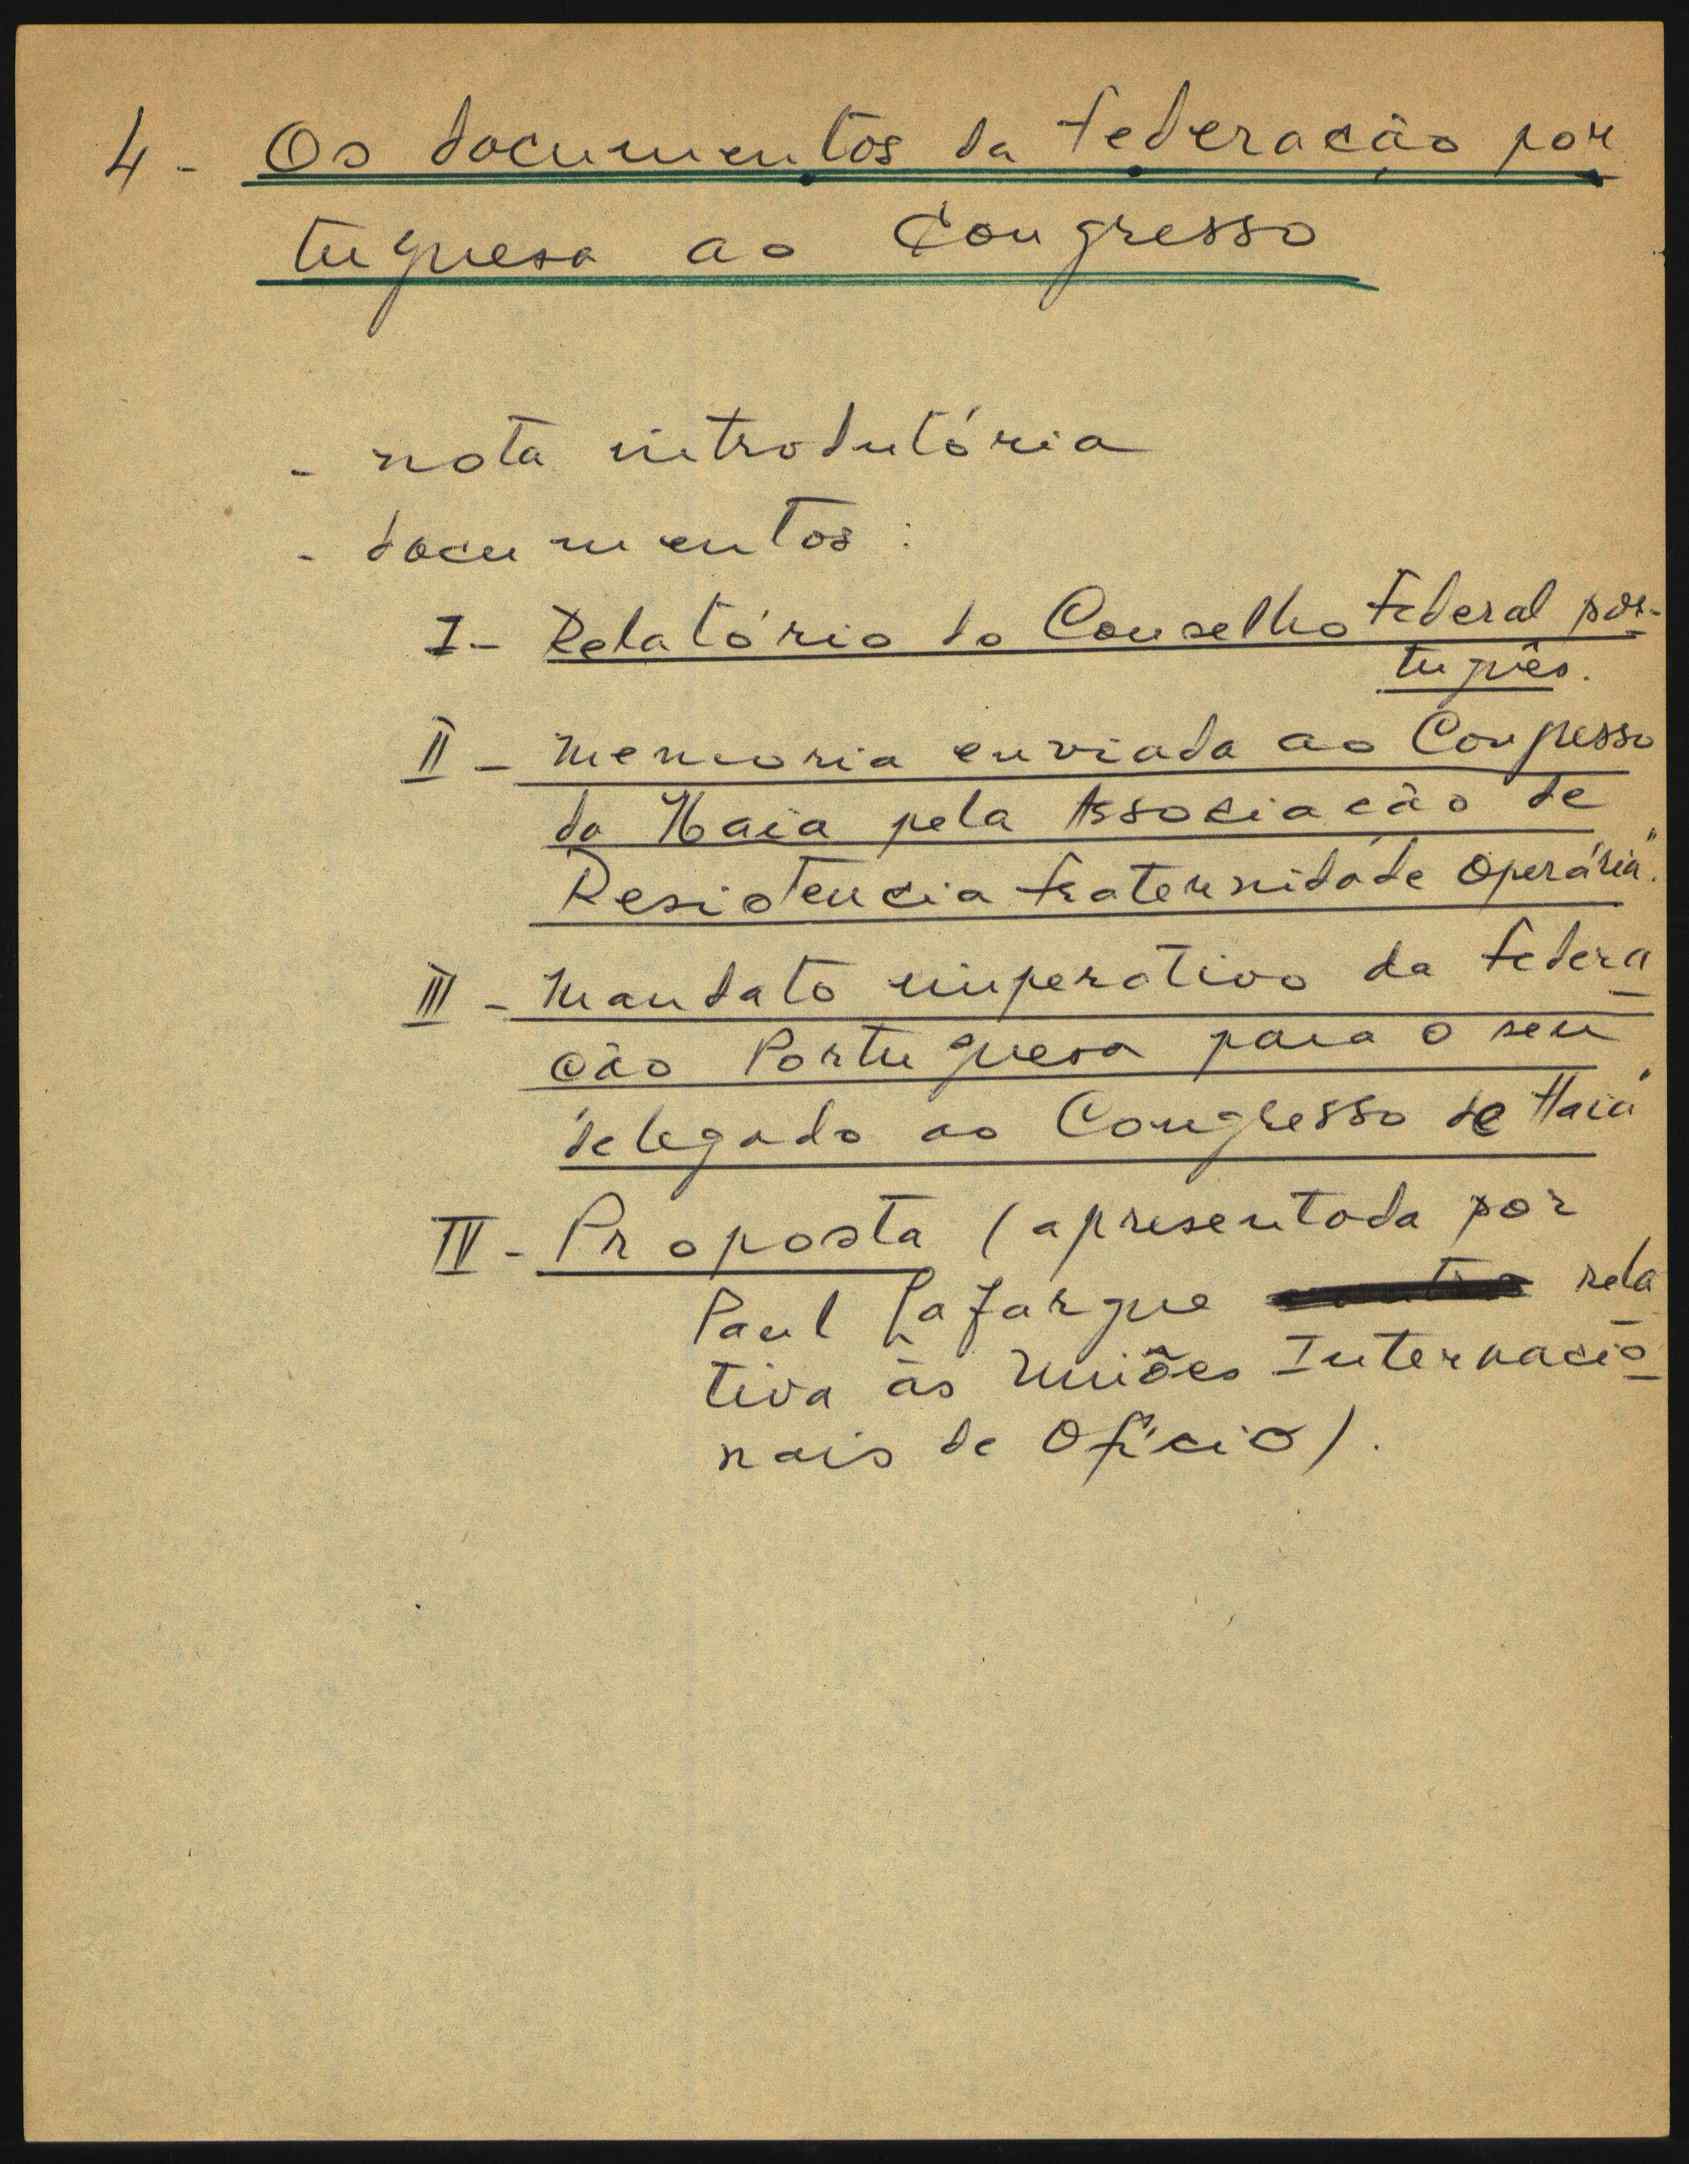 4 - Os documentos da Federação por
tuguesa ao Congresso
- nota introdutória
- documentos :
I - Relatório do Conselho Federal por-
tuguês.
II - Memoria enviada ao Congresso
da Haia pela Associação de
Resistencia Fraternidade Operária".
III - Mandato imperativo da Federa
ção Portuguesa para o seu
delegado ao Congresso de Haia"
IV - Proposta (apresentada por
Paul Lafargue rela
tiva às Uniões Internacio
nais de Ofício).